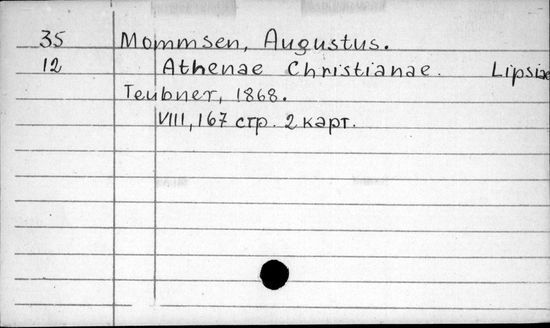 35 Mommsen, Augustus.
12 Athenae Christianae. Lipsiae
Teubner, 1868.
VIII, 167 стр. 2 карт.